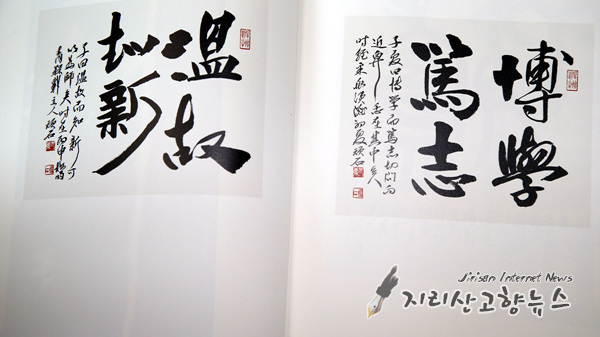 溫故
知新
子曰溫故而知新可
以為師矣
博學
篤志
子夏曰博學而篤志切問而
近思仁在其中矣
Jirisan Internet News
지리산고향뉴스